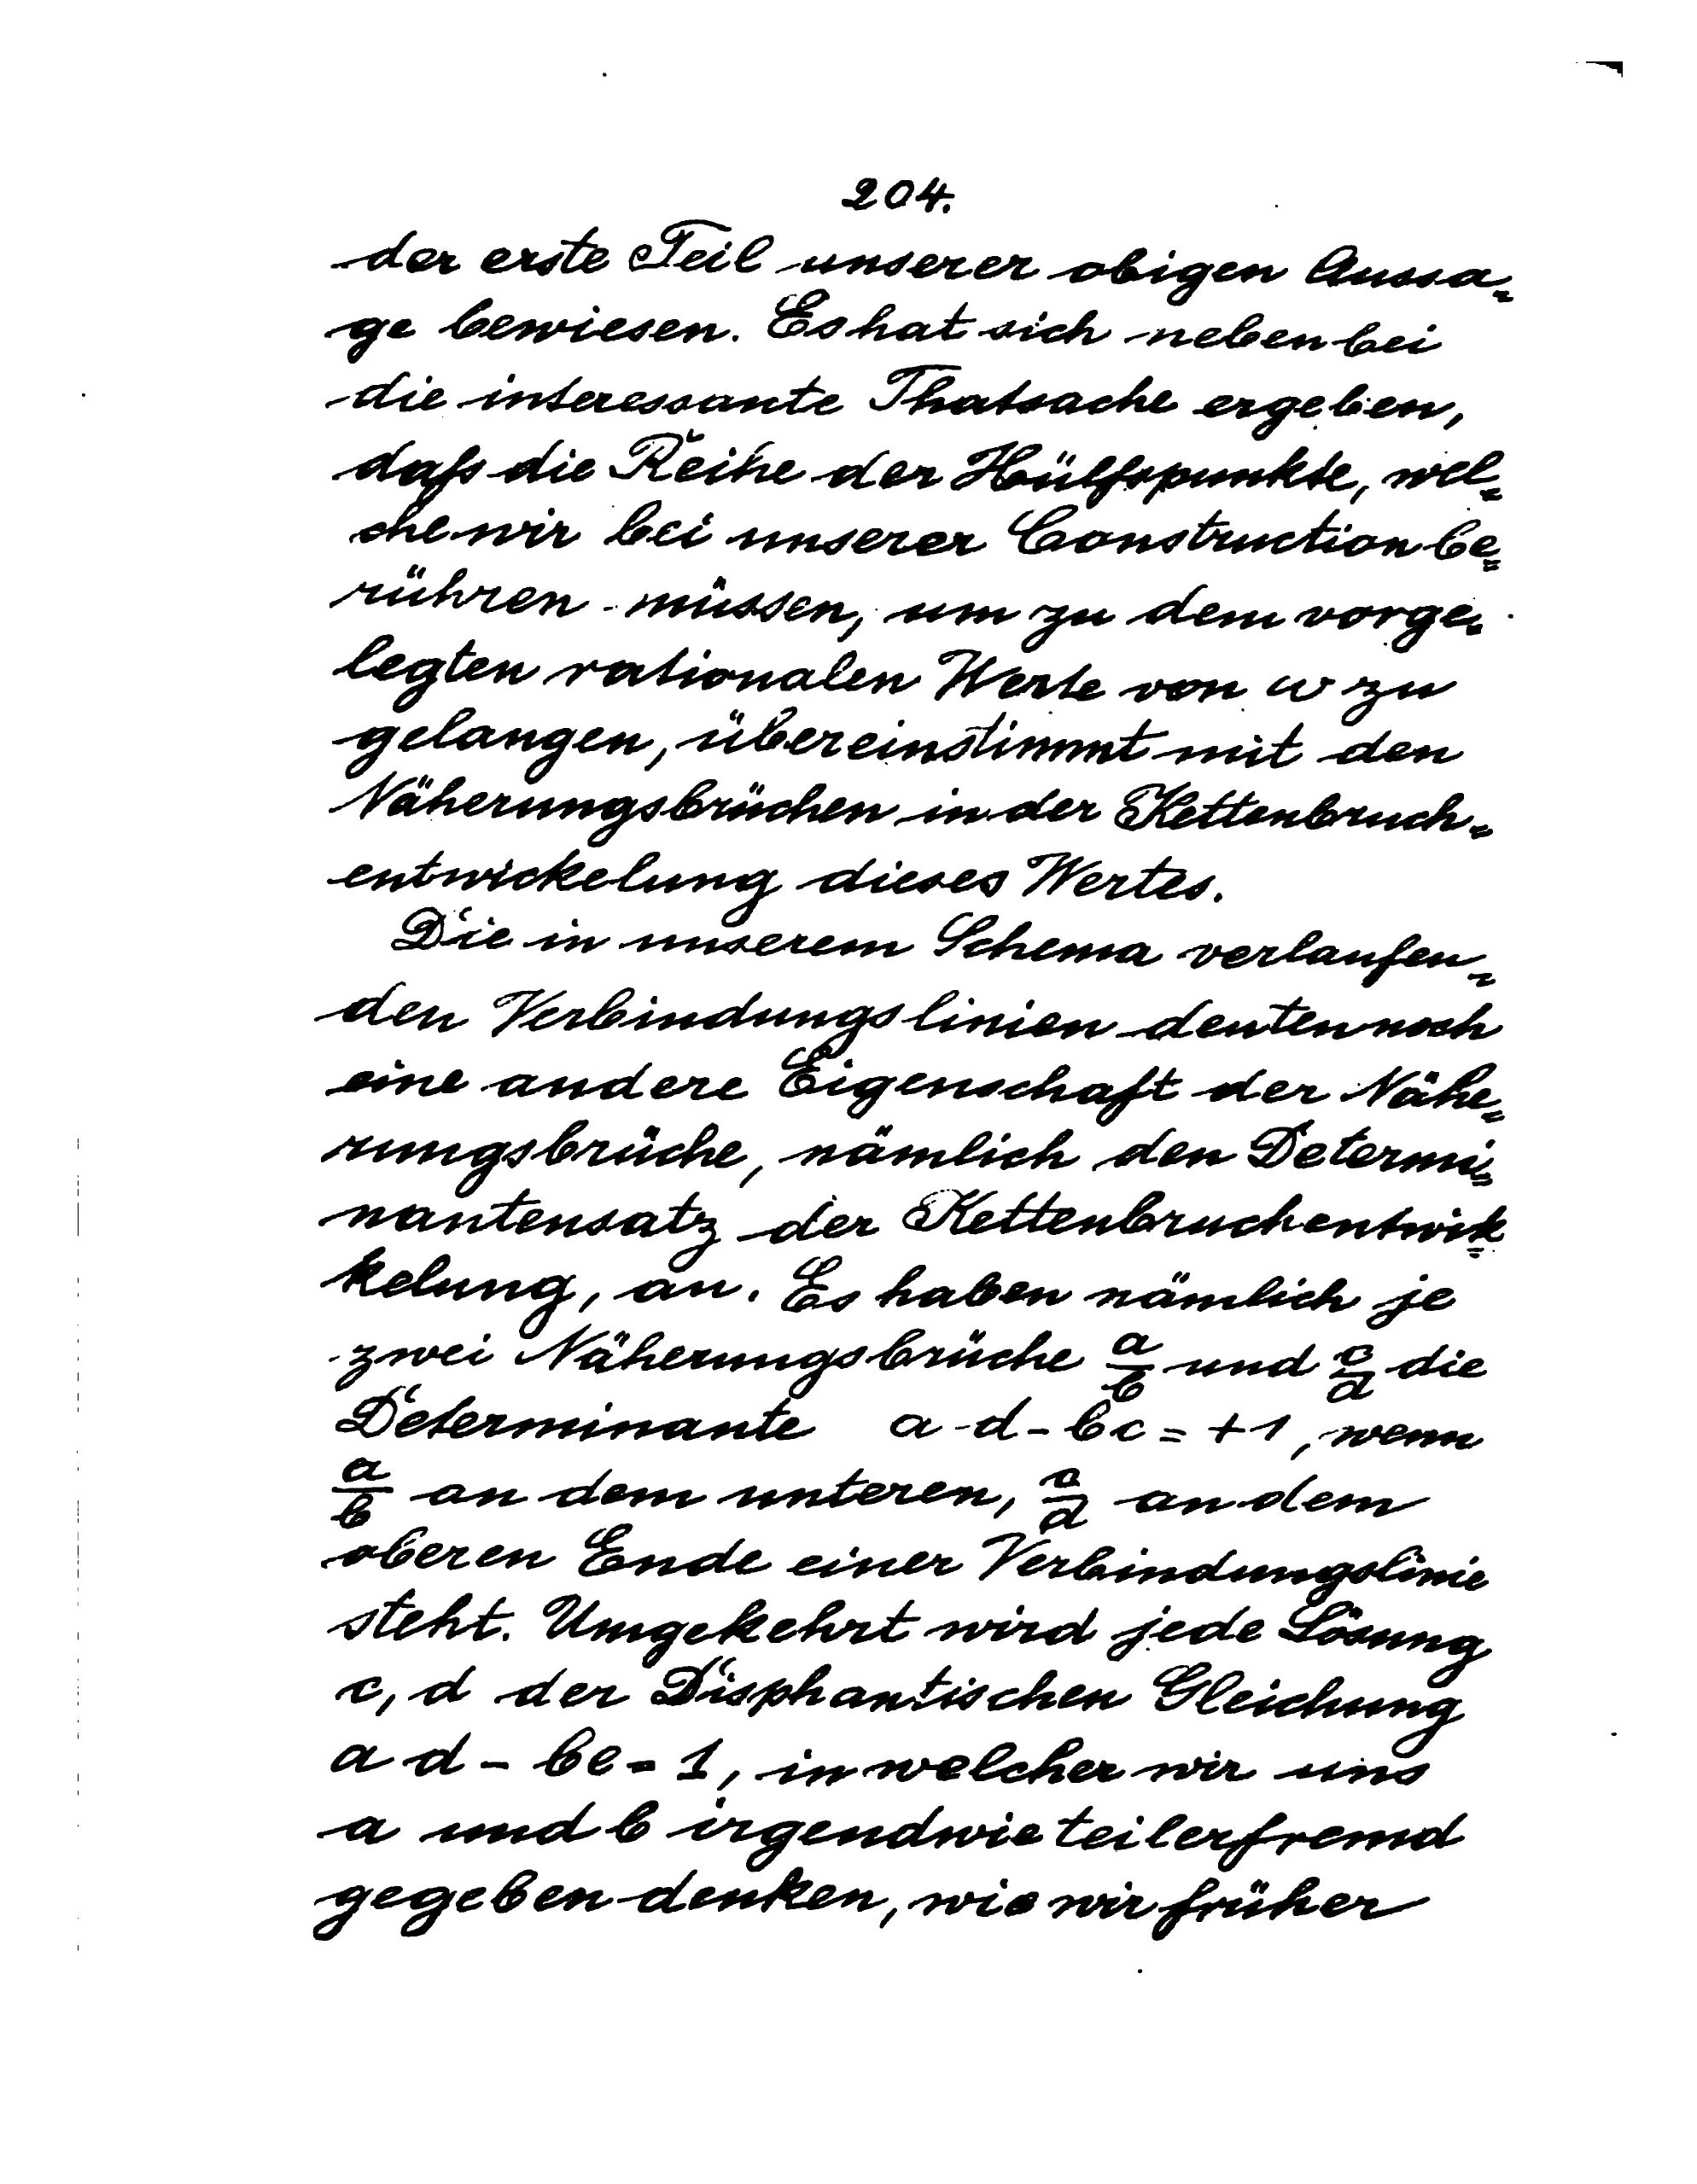 204.
der erste Teil unserer obigen Aussa=
ge bewiesen. Es hat sich nebenbei
die interessante Thatsache ergeben,
daß die Reihe der Hülfspunkte, wel=
che wir bei unserer Construction be=
rühren müssen, um zu dem vorge=
legten rationalen Werte von ω zu
gelangen, übereinstimmt mit den
Näherungsbrüchen in der Kettenbruch=
entwickelung dieses Wertes.
Die in unserem Schema verlaufen=
den Verbindungslinien deuten noch
eine andere Eigenschaft der Nähe=
rungsbrüche, nämlich den Determi=
nantensatz der Kettenbruchentwik=
kelung, an. Es haben nämlich je
zwei Näherungsbrüche a/b und c/d die
Determinante a d - b c = +1, wenn
a/b an dem unteren, c/d an dem
oberen Ende einer Verbindungslinie
steht. Umgekehrt wird jede Lösung
c, d der Diophantischen Gleichung
a d - b c = 1, in welcher wir uns
a und b irgendwie teilerfremd
gegeben denken, wie wir früher